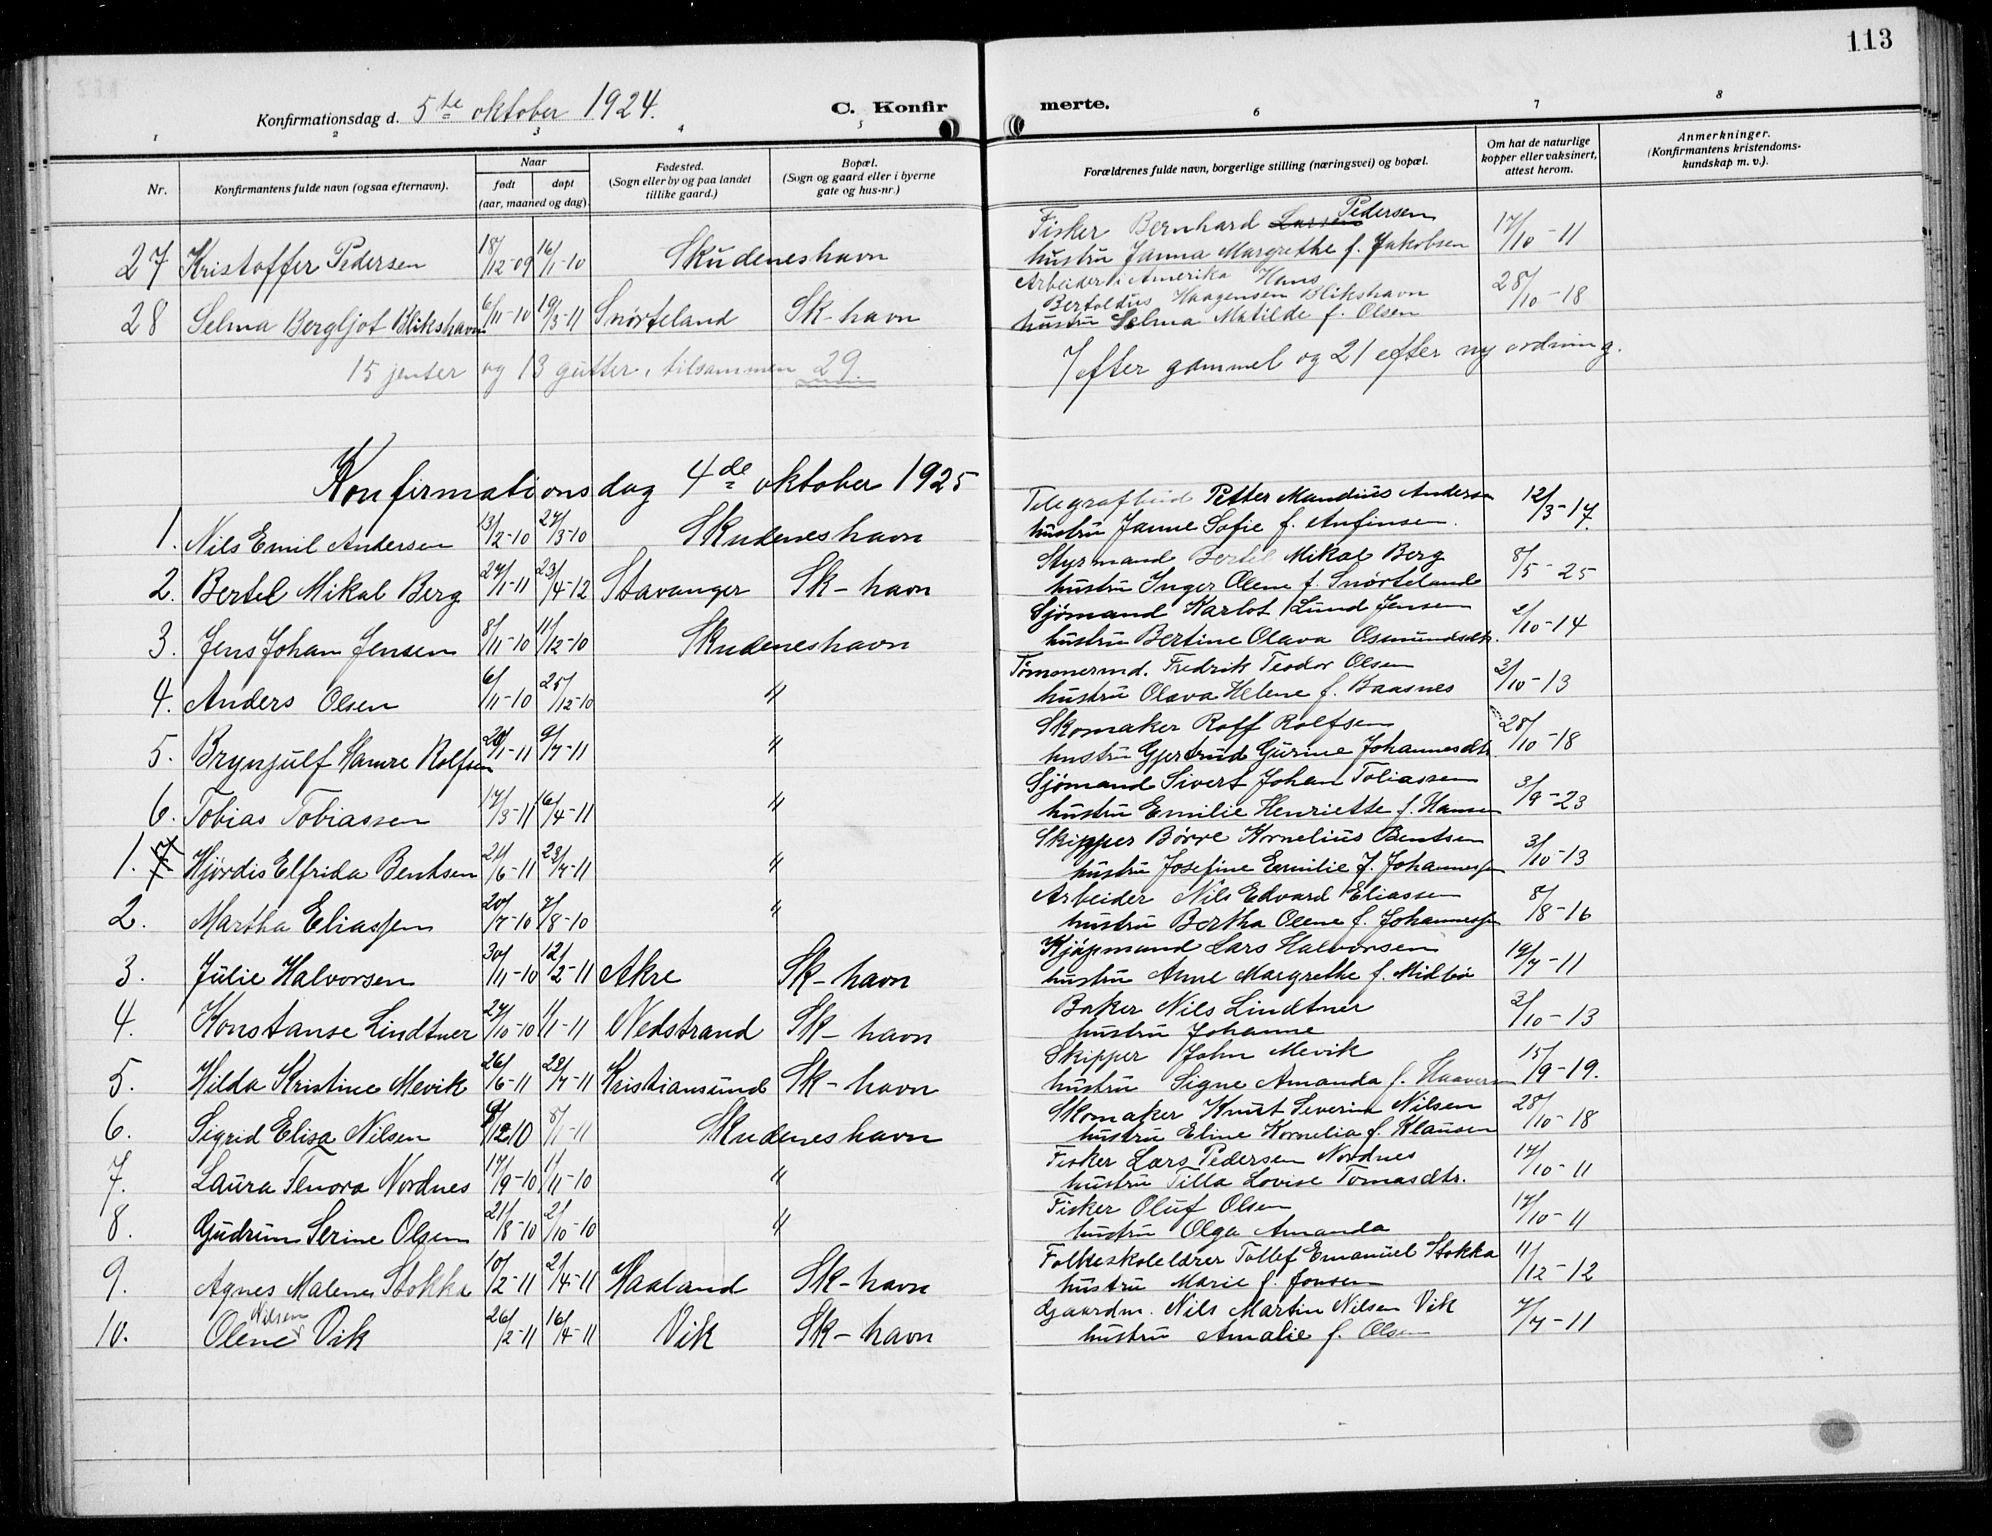 113
Konfirmationsdag d. 5te oktober 1924. C. Konfirmerte.
1 2 3 4 5 6 7 8
Nr. Konfirmantens fulde navn (ogsaa efternavn). Naar født døpt (aar, maaned og dag). Fødested. (Sogn eller by og paa landet tillike gaard.) Bopæl. (Sogn og gaard eller i byerne gate og hus-nr.) Forældrenes fulde navn, borgerlige stilling (næringsvei) og bopæl. Om hat de naturlige kopper eller vaksinert, attest herom. Anmerkninger. (Konfirmantens kristendomskundskap m. v.).
27 Kristoffer Pedersen 18/12-09 16/1-10 Skudeneshavn Fisker Bernhard Larsen Pedersen 17/10-11
hustru Janna Margrethe f. Jakobsen
28 Selma Bergljot Blikshavn 6/11-10 19/3-11 Snörteland Sk-havn Arbeider i Amerika Hans 28/10-18
Bertoldus Haagensen Blikshavn
hustru Selma Matilde f. Olsen
15 jenter og 13 gutter, tilsammen 29. 7 efter gammel og 21 efter ny ordning.
Konfirmationsdag 4de oktober 1925
1. Nils Emil Andersen 13/2-10 27/3-10 Skudeneshavn Telegrafbud Petter Mandius Andersen 12/3-17
hustru Janne Sofie f. Anfinsen.
2. Bertel Mikal Berg 27/1-11 23/4-12 Stavanger Sk-havn Styrmand Bertel Mikal Berg 8/5-25
hustru Inger Olene f. Snörteland
3. Jens Johan Jensen 8/11-10 11/12-10 Skudeneshavn Sjömand Karlot Lund Jensen 2/10-14
hustru Bertine Olava Osmundsdtr.
4. Anders Olsen 6/11-10 25/12-10 " Tömmermd. Fredrik Teodor Olsen 3/10-13
hustru Olava Helene f. Baasnes
5. Brynjulf Hamre Rolfsen /1-11 9/7-11 " Skomaker Rolf Rolfsen 28/10-18
hustru Gjertrud Gurine Johannesdtr.
6. Tobias Tobiassen 17/3-11 16/4-11 " Sjömand Sivert Johan Tobiassen 3/9-23
hustru Emilie Henriette f. Hansen
1. 7 Hjördis Elfrida Bentsen 21/6-11 23/7-11 " Skipper Börre Kornelius Bentsen 3/10-13
hustru Josefine Emilie f. Johannessen
2. Martha Eliassen 20/7-10 7/8-10 " Arbeider Nils Edvard Eliassen 8/8-16
hustru Bertha Olene f. Johannessen
3. Julie Halvorsen 30/11-10 12/2-11 Akre Sk-havn Kjöpmand Lars Halvorsen 14/7-11
hustru Anne Margrethe f. Midbö
4. Konstanse Lindtner 27/10-10 1/1-11 Nedstrand Sk-havn Baker Nils Lindtner 3/10-13
hustru Johanne
5. Hilda Kristine Mevik 26/6-11 23/7-11 Kristiansund Sk-havn Skipper John Mevik 15/9-19.
hustru Signe Amanda f.
6. Sigrid Elisa Nilsen 9/12 10 8/1-11 Skudeneshavn Skomaker Knut Severin Nilsen 28/10-18
hustru Eline Kornelia f. Klausen
7. Laura Tenora Nordnes 17/9-10 1/11-10 " Fisker Lars Pedersen Nordnes 17/10-11
hustru Tilla Lovise Tomasdtr.
8. Gudrun Serine Olsen 21/8-10 2/10-10 " Fisker Oluf Olsen 17/10-11
hustru Olga Amanda
9. Agnes Malene Stokka 10/2-11 2/4-11 Haaland Sk-havn Folkeskolelärer Tollef Emanuel Stokka 11/12-12
hustru Marie f. Jonsen
10. Olene Nilsen Vik 26/2-11 16/4-11 Vik Sk-havn Gaardm. Nils Martin Nilsen Vik 7/7-11
hustru Amalie f. Olsen